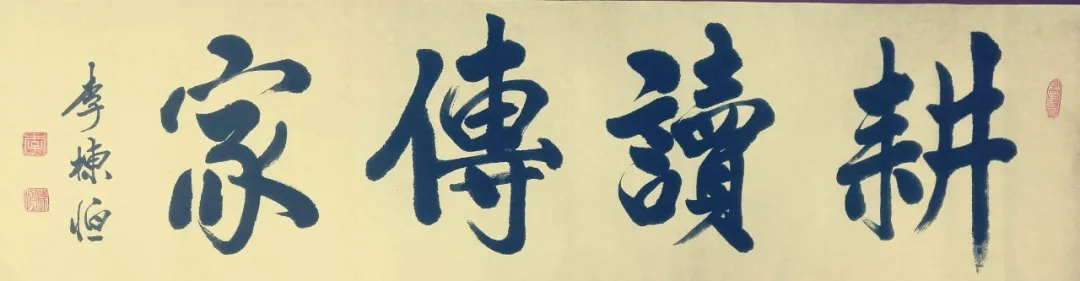 耕讀傳家
李棟恒